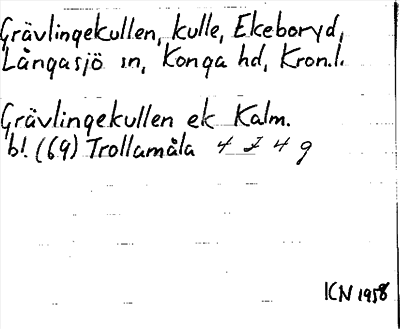 Grävlingekullen, kulle, Ekeboryd,
Långasjö sn, Konga hd, Kron.l.
Grävlingekullen ek Kalm.
bl. (69) Trollamåla 4 J 4 g
ICN 1958